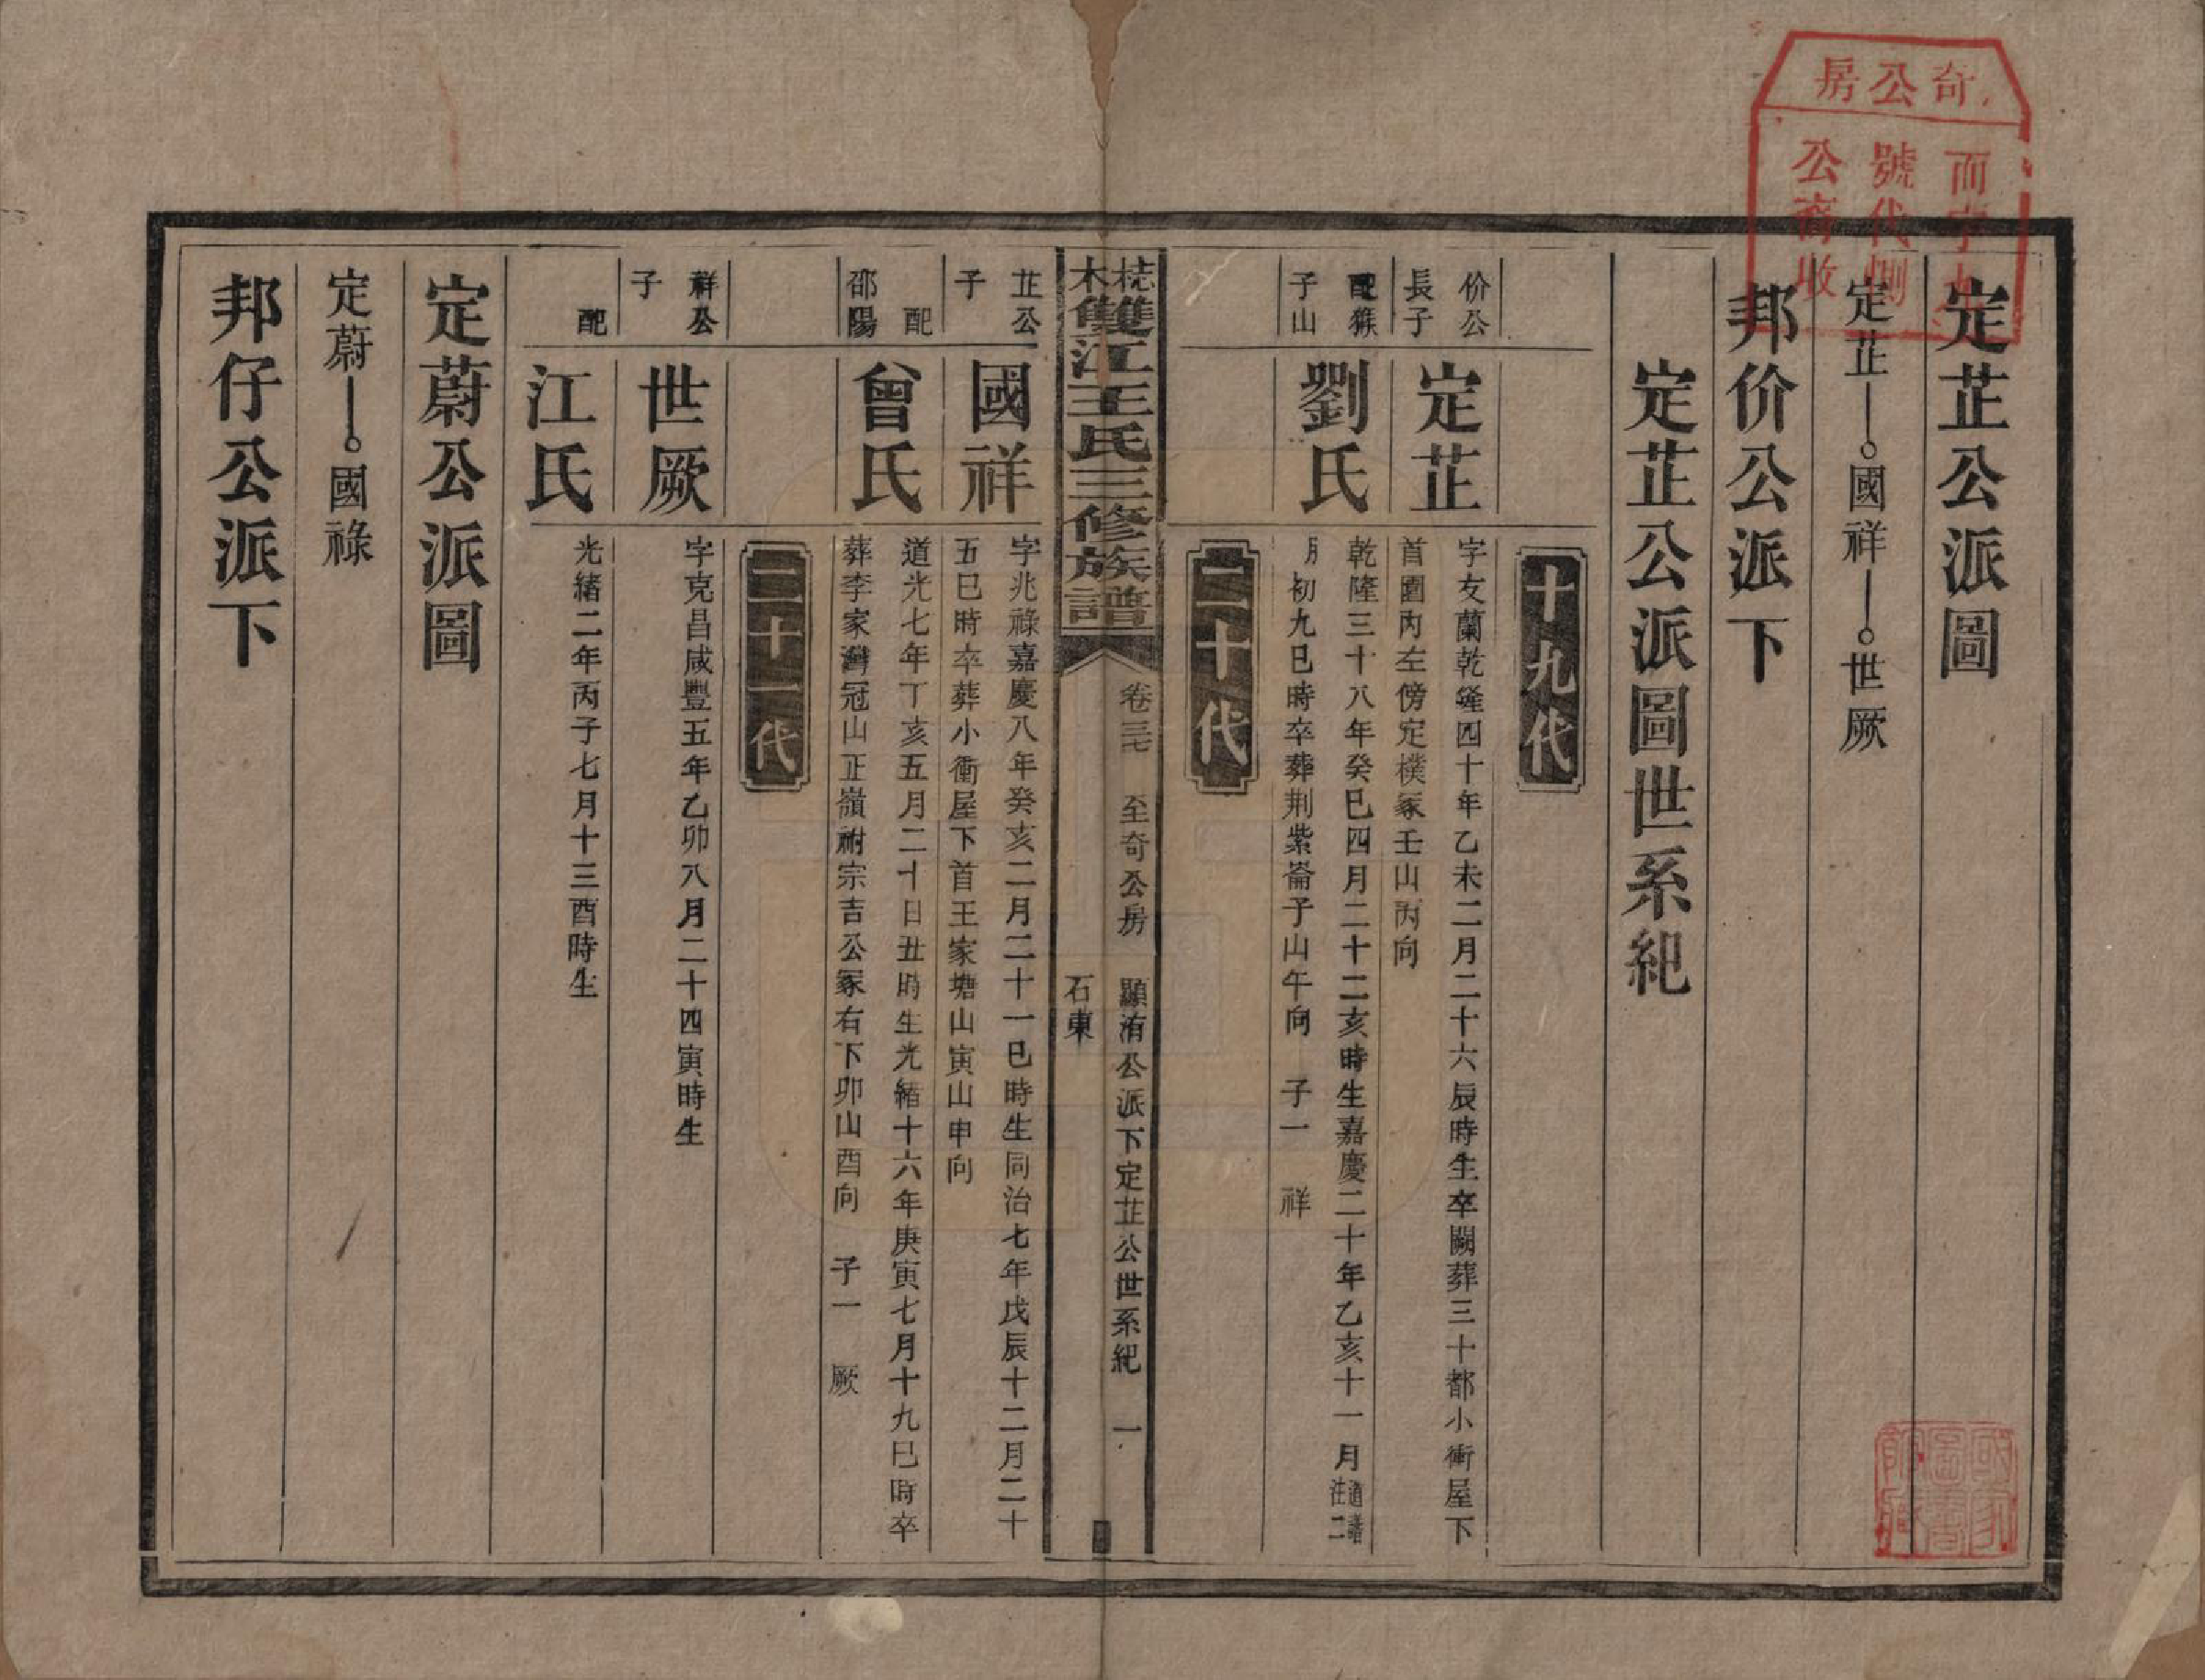 奇公房
而字
號代
公裔收
定芷公派圖
定芷—國祥—世厥
邦价公派下
定芷公派圖世系紀
十九代
价公長子
定芷
字友蘭乾隆四十年乙未二月二十六辰時生卒闕葬三十都小衝屋下
首園內左傍定樸冢壬山丙向
配猴子山
劉氏
乾隆三十八年癸巳四月二十二亥時生嘉慶二十年乙亥十一月
月初九巳時卒葬荆紫崙子山午向 子一 祥
二十代
雙江王氏三修族譜
卷三七 至奇公房 顯洧公派下定芷公世系紀 一
石東
芷公子
國祥
字兆祿嘉慶八年癸亥二月二十一巳時生同治七年戊辰十二月二十
五巳時卒葬小衝屋下首王家塘山寅山申向
配邵陽
曾氏
道光七年丁亥五月二十日丑時生光緒十六年庚寅七月十九巳時卒
葬李家灣冠山正嶺祔宗吉公冢右下卯山酉向 子一 厥
二十一代
祥公子
世厥
字克昌咸豐五年乙卯八月二十四寅時生
配
江氏
光緒二年丙子七月十三酉時生
定蔚公派圖
定蔚—國祿
邦仔公派下